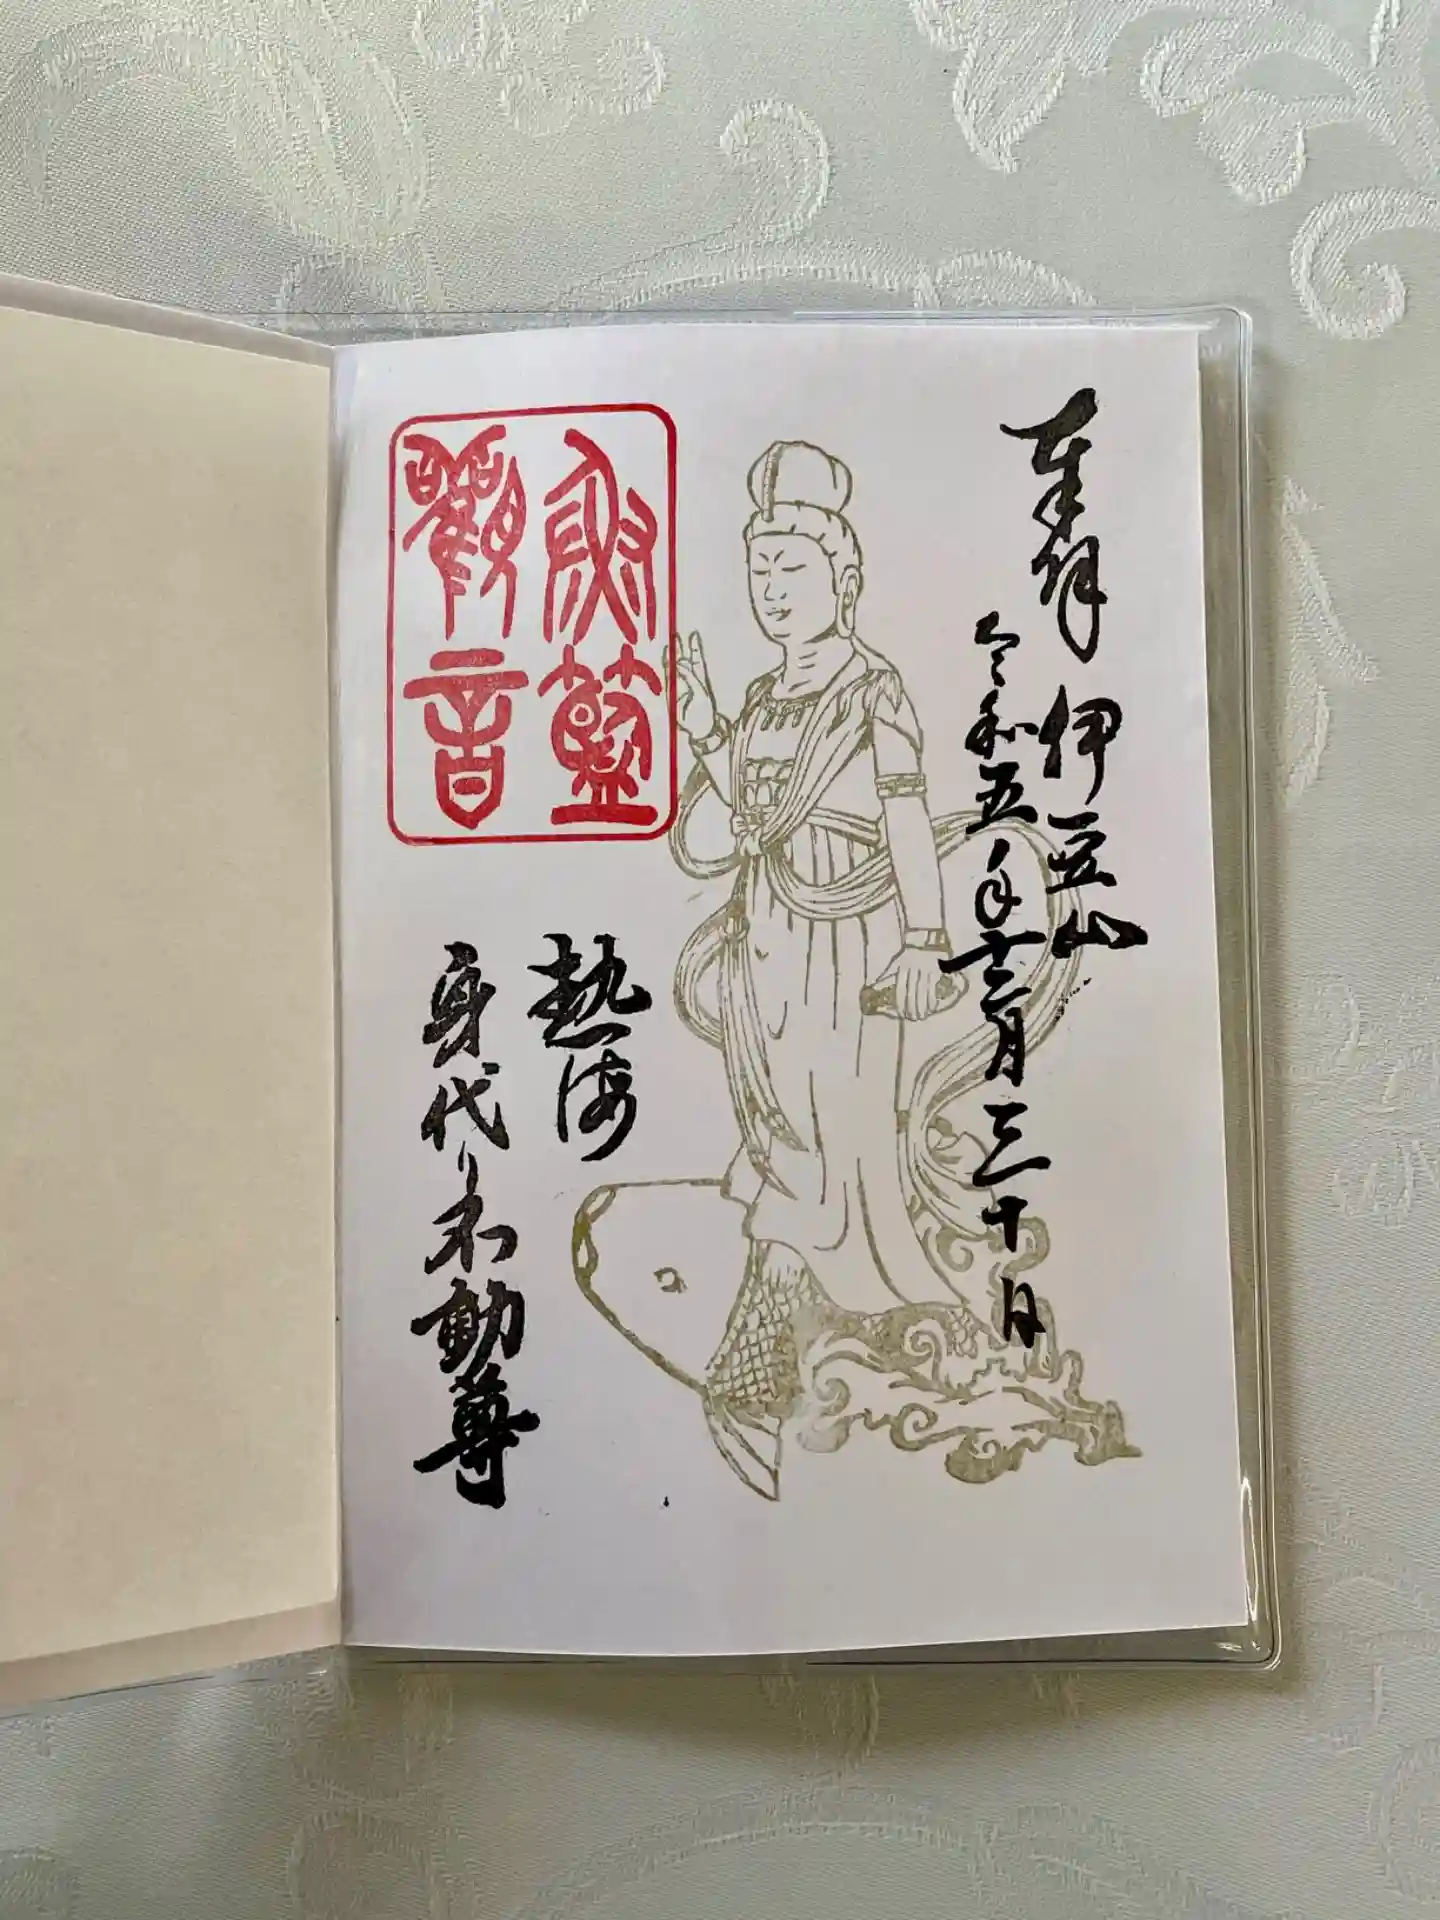 奉拝 伊豆山
令和五年十二月三十日
觀音
熱海
身代り不動尊